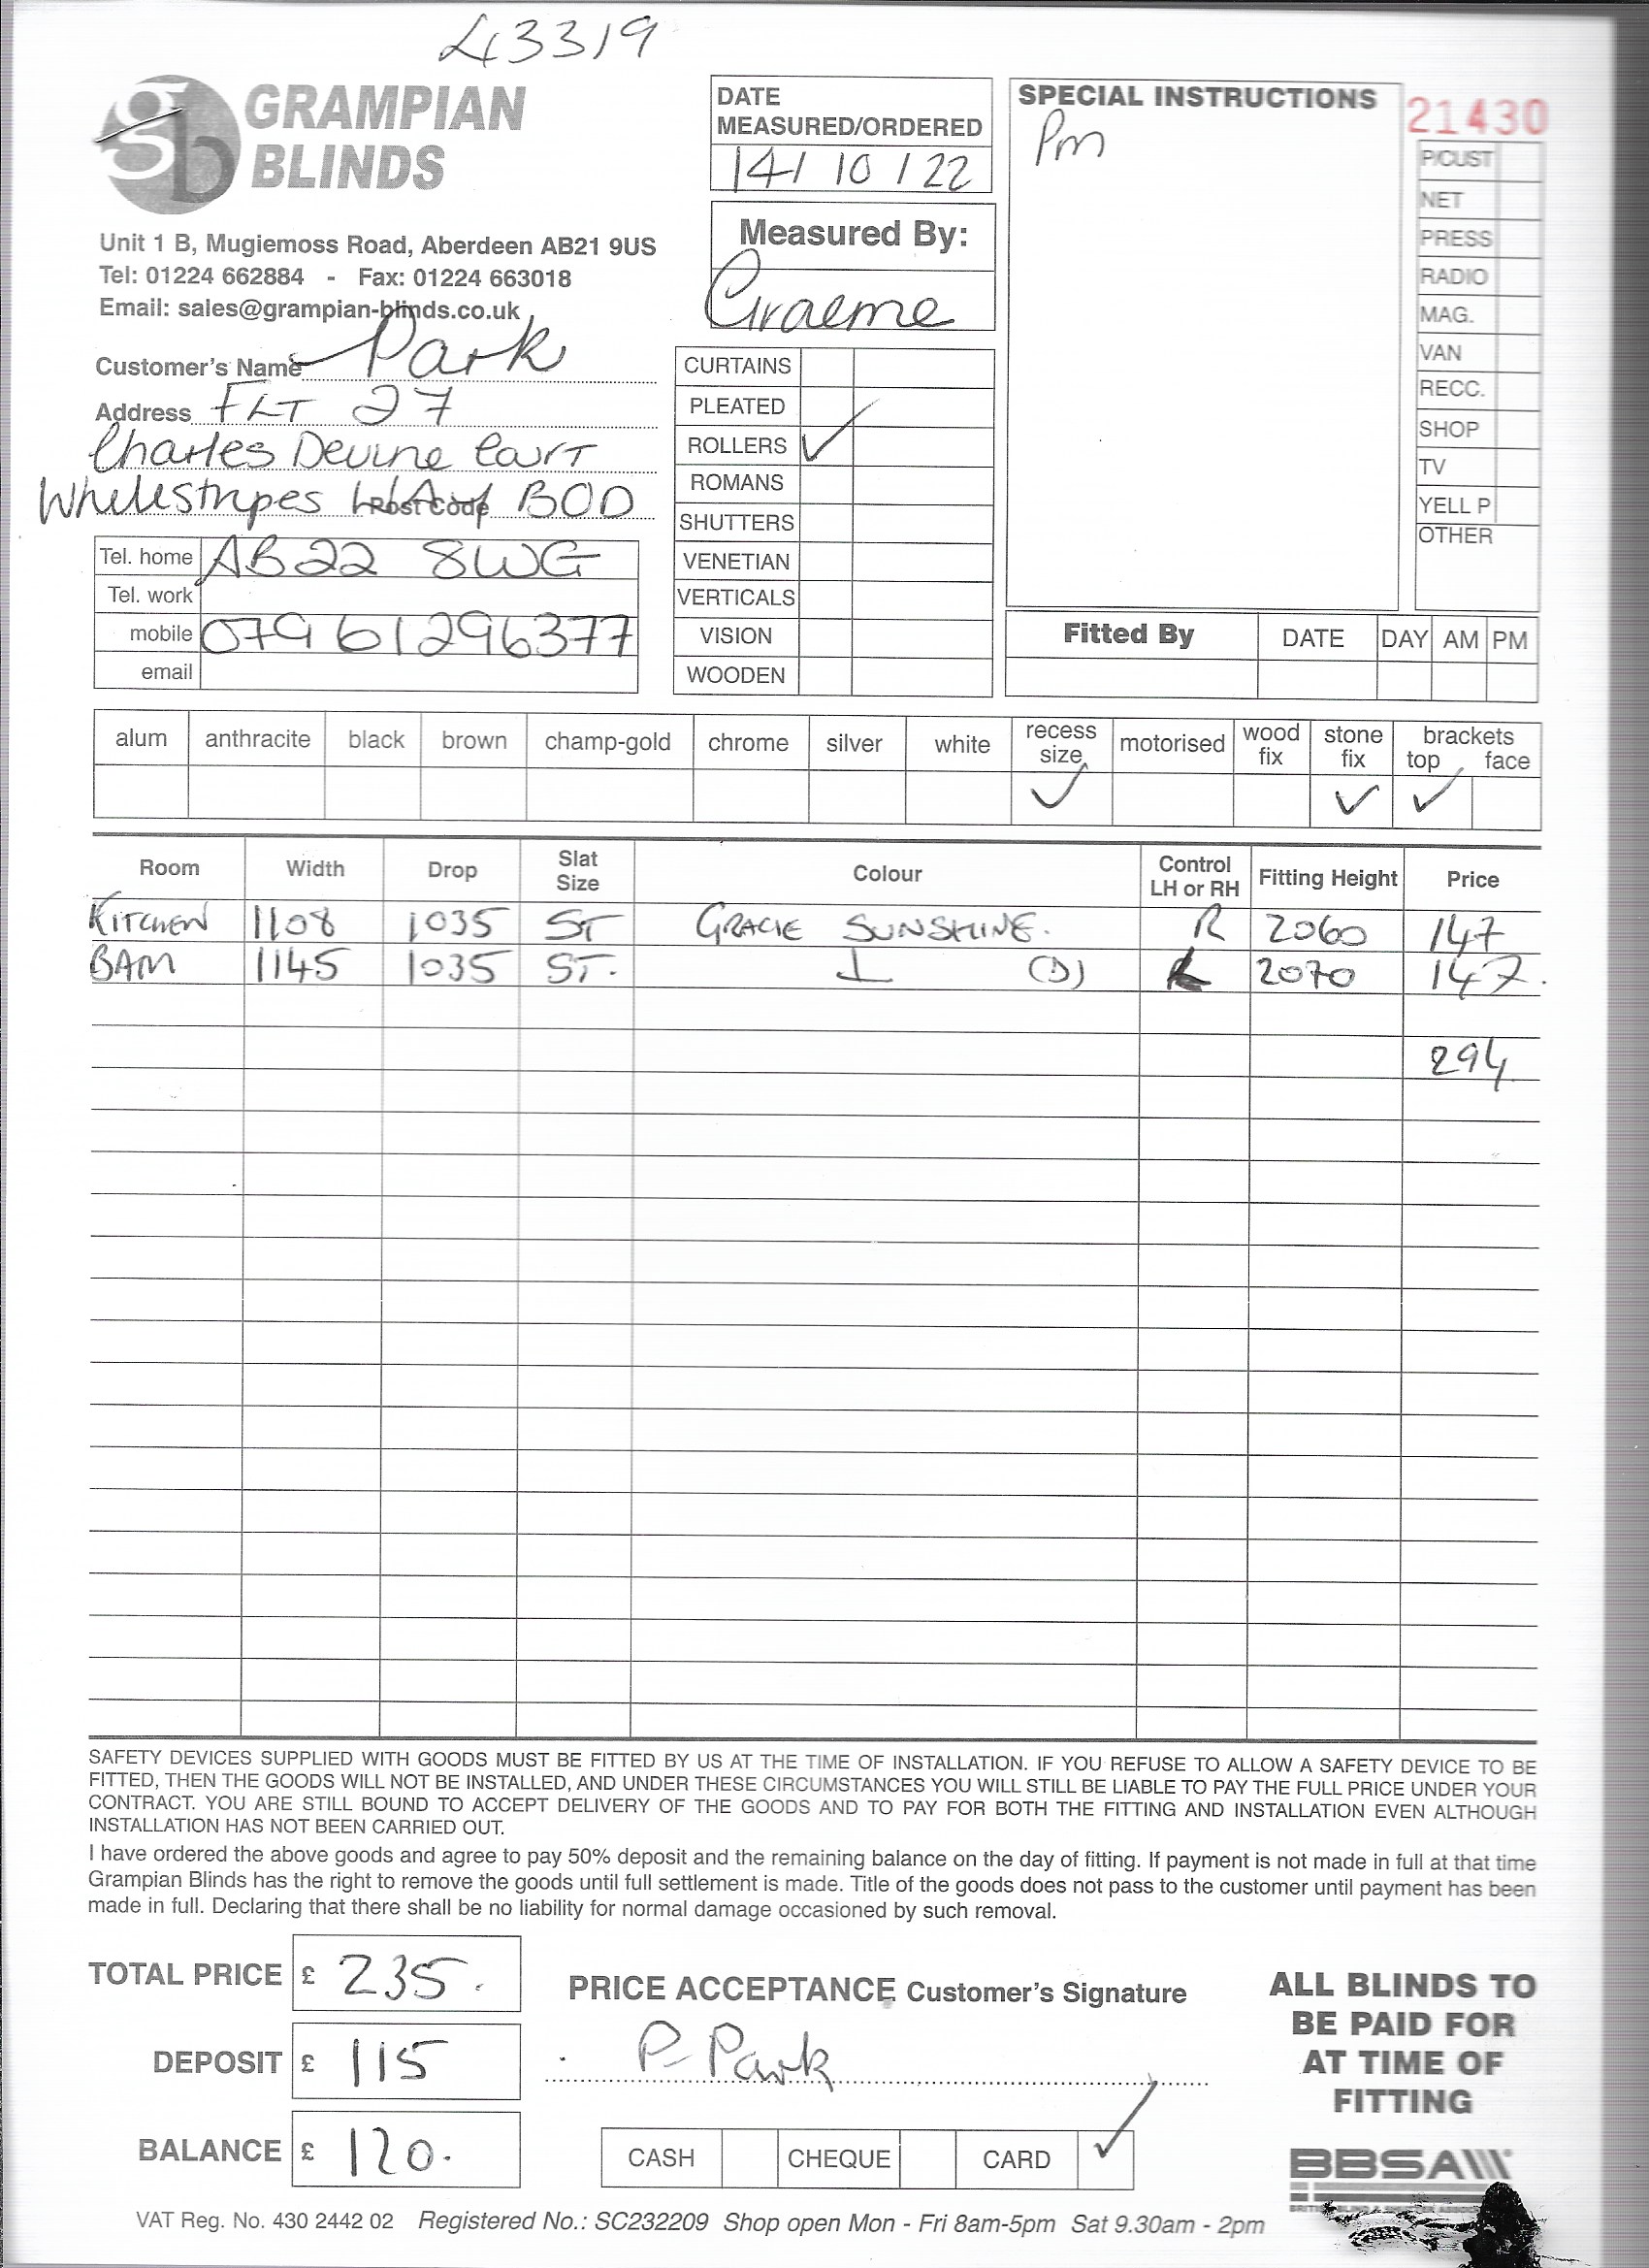 43319
GRAMPIAN
BLINDS
Unit 1 B, Mugiemoss Road, Aberdeen AB21 9US
Tel: 01224 662884 - Fax: 01224 663018
Email: sales@grampian-blinds.co.uk
Customer's Name Park
Address FLT 27
Charles Devine Court
Whitestripes Post Code BOD
Tel. home AB22 8WG
Tel. work
mobile 07961296377
email
DATE
MEASURED/ORDERED
14/ 10 / 22
Measured By:
Graeme
CURTAINS
PLEATED
ROLLERS ✓
ROMANS
SHUTTERS
VENETIAN
VERTICALS
VISION
WOODEN
SPECIAL INSTRUCTIONS
Pm
21430
P/CUST
NET
PRESS
RADIO
MAG.
VAN
RECC.
SHOP
TV
YELL P
OTHER
Fitted By DATE DAY AM PM
alum anthracite black brown champ-gold chrome silver white recess size motorised wood fix stone fix brackets top face
✓ ✓ ✓
Room Width Drop Slat Size Colour Control LH or RH Fitting Height Price
KITCHEN 1108 1035 ST GRACIE SUNSHINE. R 2060 147
1145 1035 ST. 2070 147.
294
SAFETY DEVICES SUPPLIED WITH GOODS MUST BE FITTED BY US AT THE TIME OF INSTALLATION. IF YOU REFUSE TO ALLOW A SAFETY DEVICE TO BE
FITTED, THEN THE GOODS WILL NOT BE INSTALLED, AND UNDER THESE CIRCUMSTANCES YOU WILL STILL BE LIABLE TO PAY THE FULL PRICE UNDER YOUR
CONTRACT. YOU ARE STILL BOUND TO ACCEPT DELIVERY OF THE GOODS AND TO PAY FOR BOTH THE FITTING AND INSTALLATION EVEN ALTHOUGH
INSTALLATION HAS NOT BEEN CARRIED OUT.
I have ordered the above goods and agree to pay 50% deposit and the remaining balance on the day of fitting. If payment is not made in full at that time
Grampian Blinds has the right to remove the goods until full settlement is made. Title of the goods does not pass to the customer until payment has been
made in full. Declaring that there shall be no liability for normal damage occasioned by such removal.
TOTAL PRICE £ 235.
DEPOSIT £ 115
BALANCE £ 120.
PRICE ACCEPTANCE Customer's Signature
P Park
CASH CHEQUE CARD ✓
ALL BLINDS TO
BE PAID FOR
AT TIME OF
FITTING
BBSA
VAT Reg. No. 430 2442 02 Registered No.: SC232209 Shop open Mon - Fri 8am-5pm Sat 9.30am - 2pm